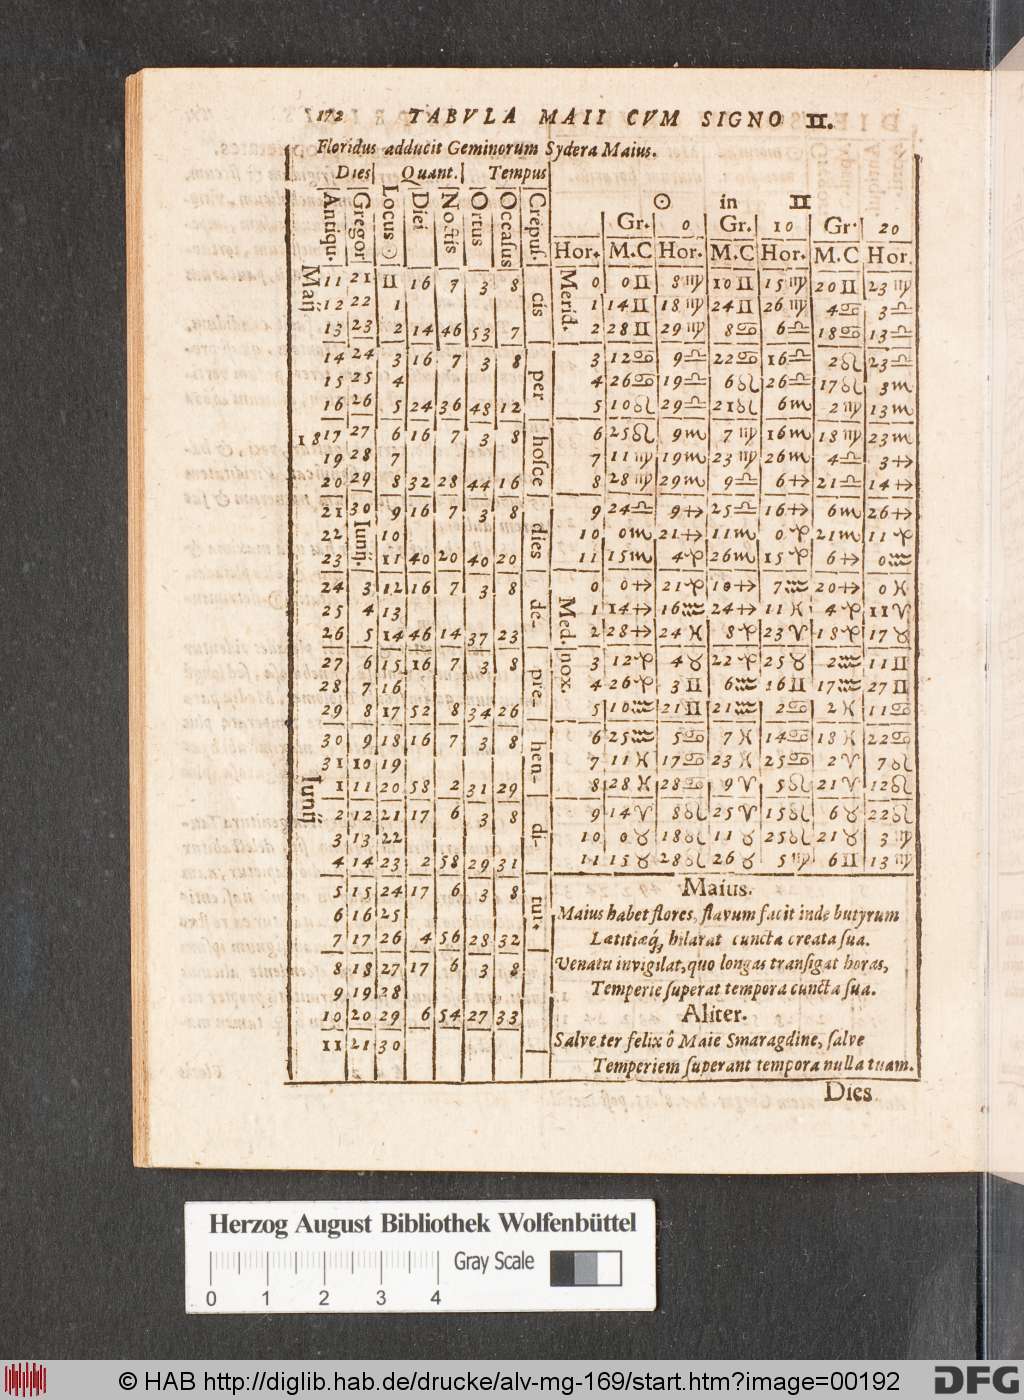 172 TABVLA MAII CVM SIGNO ♊.
Floridus adducit Geminorum Sydera Maius.
Dies Quant. Tempus
Antiqu. Gregor Locus ☉ Diei Noctis Ortus Occasus Crepus.
Maij
11 21 ♊ 16 7 3 8
12 22 1
13 23 2 14 46 53 7
14 24 3 16 7 3 8
15 25 4
16 26 5 24 36 48 12
18 17 27 6 16 7 3 8
19 28 7
20 29 8 32 28 44 16
21 30 9 16 7 3 8
22 Iunij. 10
23 11 40 20 40 20
24 3 12 16 7 3 8
25 4 13
26 5 14 46 14 37 23
27 6 15 16 7 3 8
28 7 16
29 8 17 52 8 34 26
30 9 18 16 7 3 8
31 10 19
Iunij
1 11 20 58 2 31 29
2 12 21 17 6 3 8
3 13 22
4 14 23 2 58 29 31
5 15 24 17 6 3 8
6 16 25
7 17 26 4 56 28 32
8 18 27 17 6 3 8
9 19 28
10 20 29 6 54 27 33
11 21 30
cis per hosce dies de- pre- hen- di- tur.
☉ in ♊
Gr. 0 Gr. 10 Gr. 20
Hor. M.C Hor. M.C Hor. M.C Hor.
Merid.
0 0♊ 8♍ 10♊ 15♍ 20♊ 23♍
1 14♊ 18♍ 24♊ 26♍ 4♋ 3♎
2 28♊ 29♍ 8♋ 6♎ 18♋ 13♎
3 12♋ 9♎ 22♋ 16♎ 2♌ 23♎
4 26♋ 19♎ 6♌ 26♎ 17♌ 3♏
5 10♌ 29♎ 21♌ 6♏ 2♍ 13♏
6 25♌ 9♏ 7♍ 16♏ 18♍ 23♏
7 11♍ 19♏ 23♍ 26♏ 4♎ 3♐
8 28♍ 29♏ 9♎ 6♐ 21♎ 14♐
9 24♎ 9♐ 25♎ 16♐ 6♏ 26♐
10 0♏ 21♐ 11♏ 0♑ 21♏ 11♑
11 15♏ 4♑ 26♏ 15♑ 6♐ 0♒
Med. nox.
0 0♐ 21♑ 10♐ 7♒ 20♐ 0♓
1 14♐ 16♒ 24♐ 11♓ 4♑ 11♈
2 28♐ 24♓ 8♑ 23♈ 18♑ 17♉
3 12♑ 4♉ 22♑ 25♉ 2♒ 11♊
4 26♑ 3♊ 6♒ 16♊ 17♒ 27♊
5 10♒ 21♊ 21♒ 2♋ 2♓ 11♋
6 25♒ 5♋ 7♓ 14♋ 18♓ 22♋
7 11♓ 17♋ 23♓ 25♋ 2♈ 7♌
8 28♓ 28♋ 9♈ 5♌ 21♈ 12♌
9 14♈ 8♌ 25♈ 15♌ 6♉ 22♌
10 0♉ 18♌ 11♉ 25♌ 21♉ 3♍
11 15♉ 28♌ 26♉ 5♍ 6♊ 13♍
Maius.
Maius habet flores, flavum facit inde butyrum
Lætitiaq́; hilarat cuncta creata sua.
Venatu invigilat, quo longas transigat horas,
Temperie superat tempora cuncta sua.
Aliter.
Salve ter felix ô Maie Smaragdine, salve
Temperiem superant tempora nulla tuam.
Dies
Herzog August Bibliothek Wolfenbüttel
Gray Scale
0 1 2 3 4
© HAB http://diglib.hab.de/drucke/alv-mg-169/start.htm?image=00192
DFG